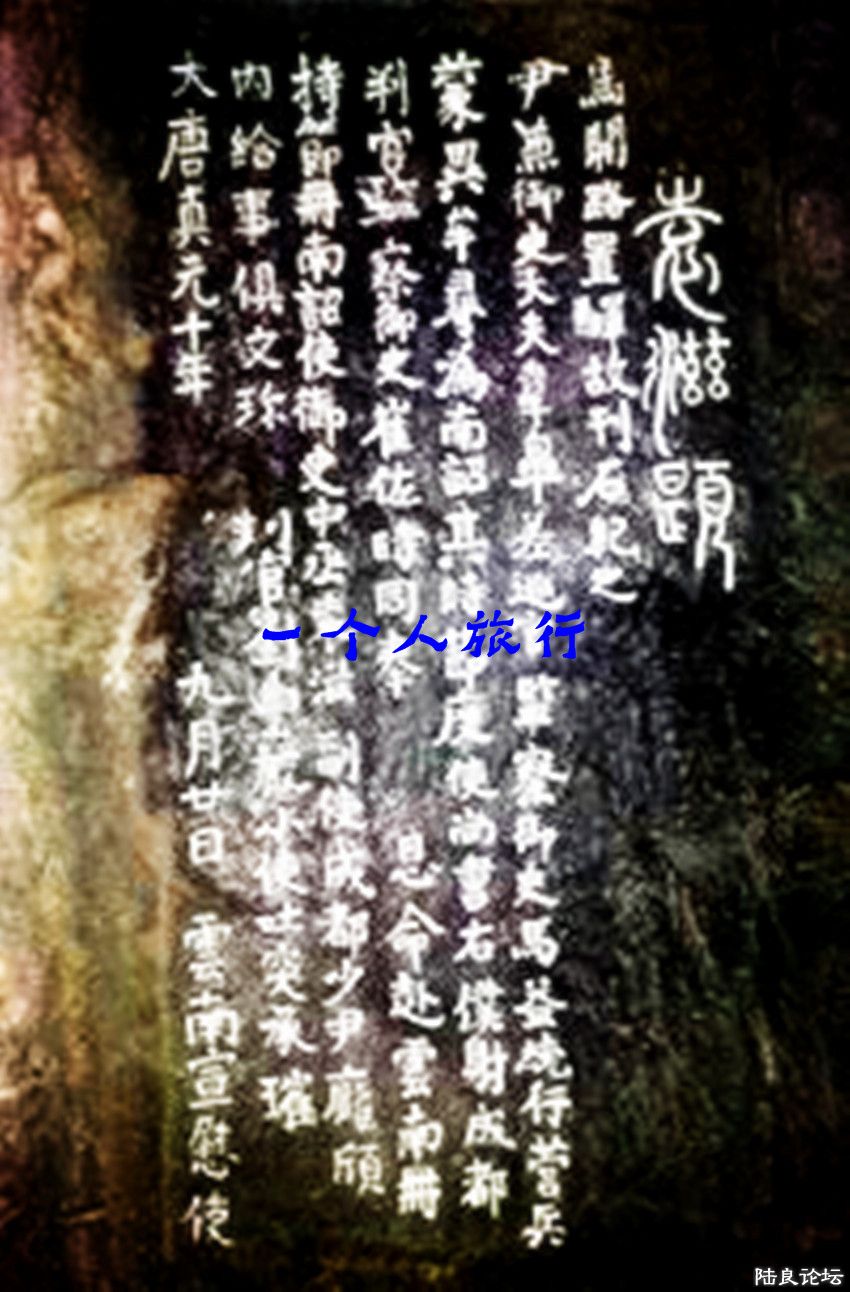 大唐貞元十年 九月廿日 雲南宣慰使
內給事俱文珍 判官小使吐突承璀
持節冊南詔使御史中丞 副使成都少尹龐頎
判官監察御史崔佐時同奉 恩命赴雲南冊
蒙異牟尋為南詔其時節度使尚書右僕射成都
尹兼御史大夫韋皋差巡監察御史馬益統行營兵
馬開路置驛故刊石紀之
袁滋題
一个人旅行
陆良论坛